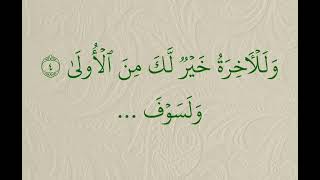 وَلَلْـَٔاخِرَةُ خَيْرٌ لَّكَ مِنَ ٱلْأُولَىٰ ٤
وَلَسَوْفَ ...